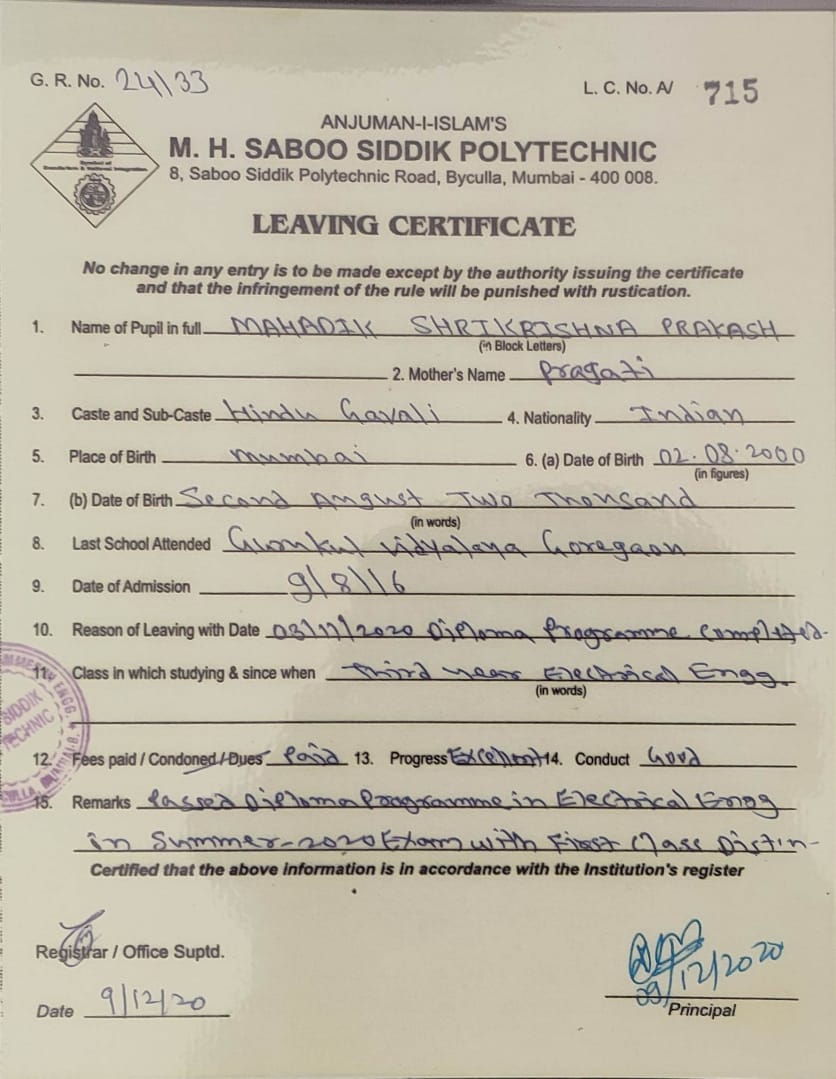 G. R. No. 24\33
L. C. No. A/ 715
ANJUMAN-I-ISLAM'S
M. H. SABOO SIDDIK POLYTECHNIC
8, Saboo Siddik Polytechnic Road, Byculla, Mumbai - 400 008.
LEAVING CERTIFICATE
No change in any entry is to be made except by the authority issuing the certificate
and that the infringement of the rule will be punished with rustication.
1. Name of Pupil in full MAHADIK SHRIKRISHNA PRAKASH
(in Block Letters)
2. Mother's Name Pragati
3. Caste and Sub-Caste Hindu Gavali 4. Nationality Indian
5. Place of Birth mumbai 6. (a) Date of Birth 02.08.2000
(in figures)
7. (b) Date of Birth Second August Two Thousand
(in words)
8. Last School Attended Vidyalaya Goregaon
9. Date of Admission 9/8/16
10. Reason of Leaving with Date 03/11/2020 Diploma Programme Completed.
11. Class in which studying & since when Third year Electrical Engg.
(in words)
12. Fees paid / Condoned / Dues Paid 13. Progress Excellent 14. Conduct Good
15. Remarks Passed Diploma Programme in Electrical Engg
in Summer-2020 Exam with First Class Distin-
Certified that the above information is in accordance with the Institution's register
Registrar / Office Suptd.
09/12/2020
Date 9/12/20
Principal